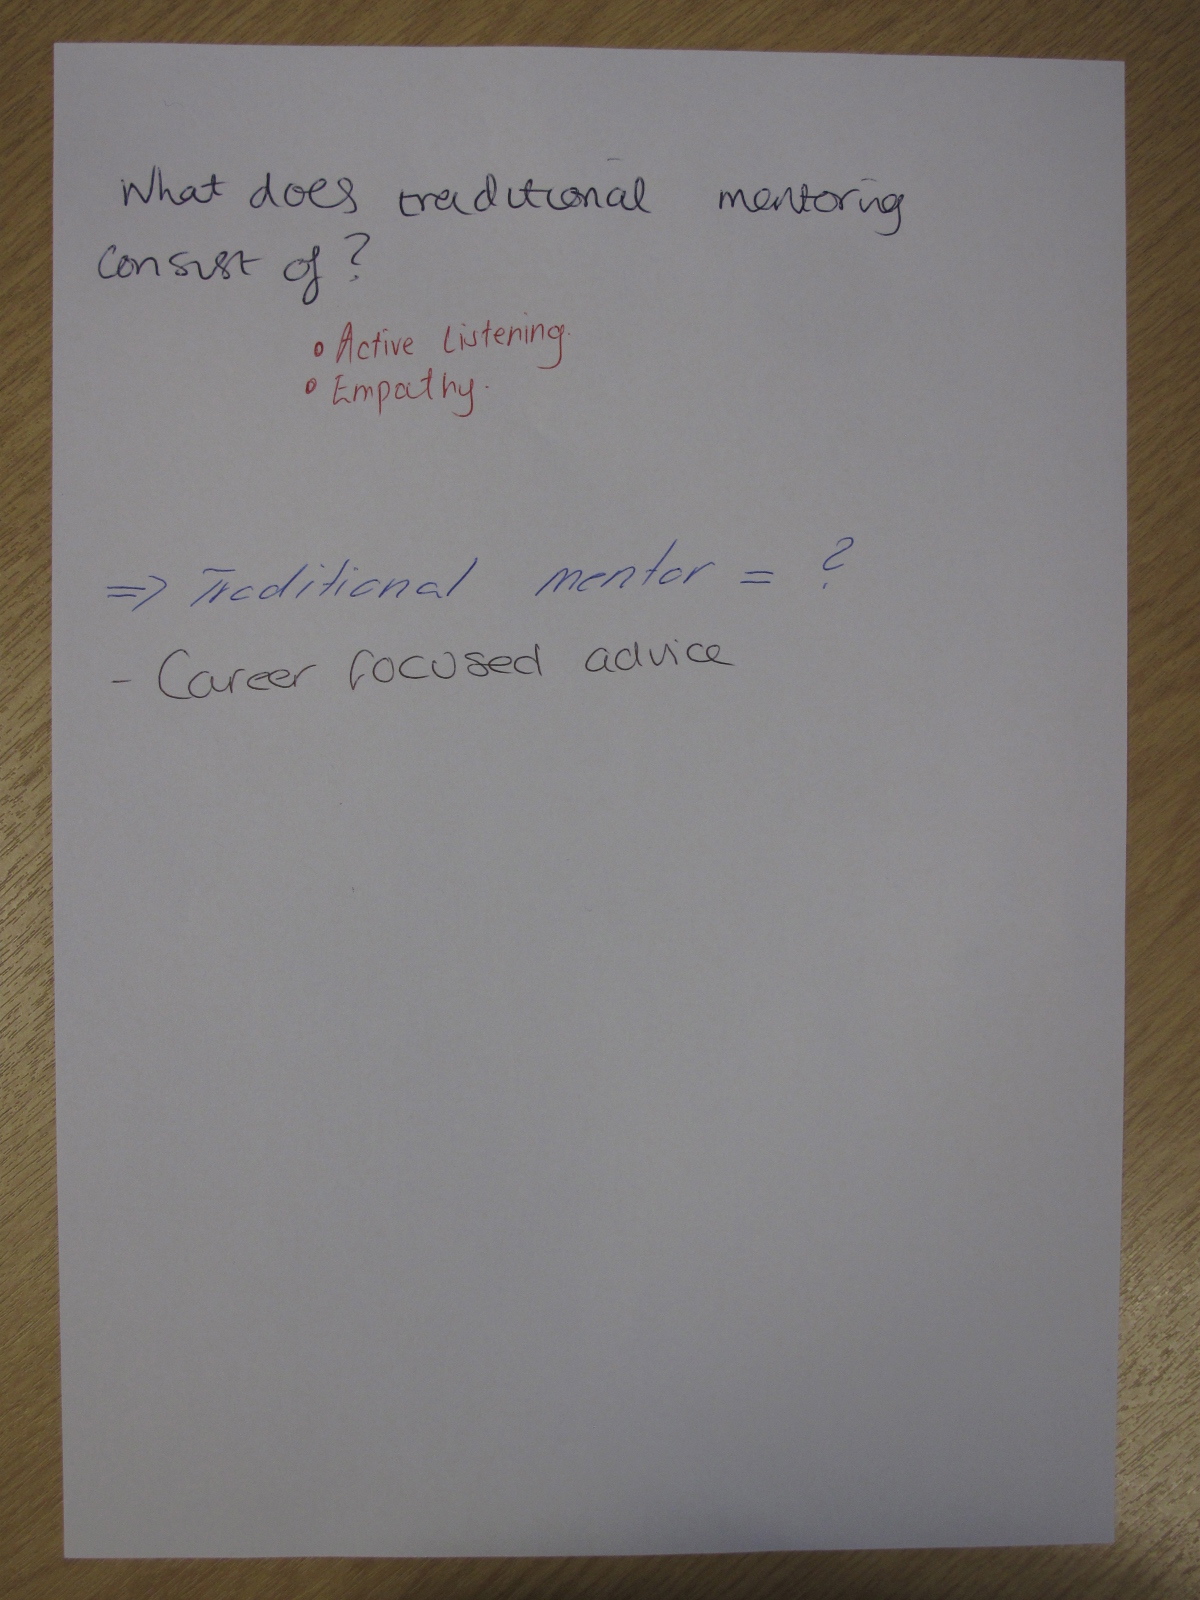 What does traditional mentoring
consist of?
• Active Listening.
• Empathy.
=> Traditional mentor = ?
- Career focused advice